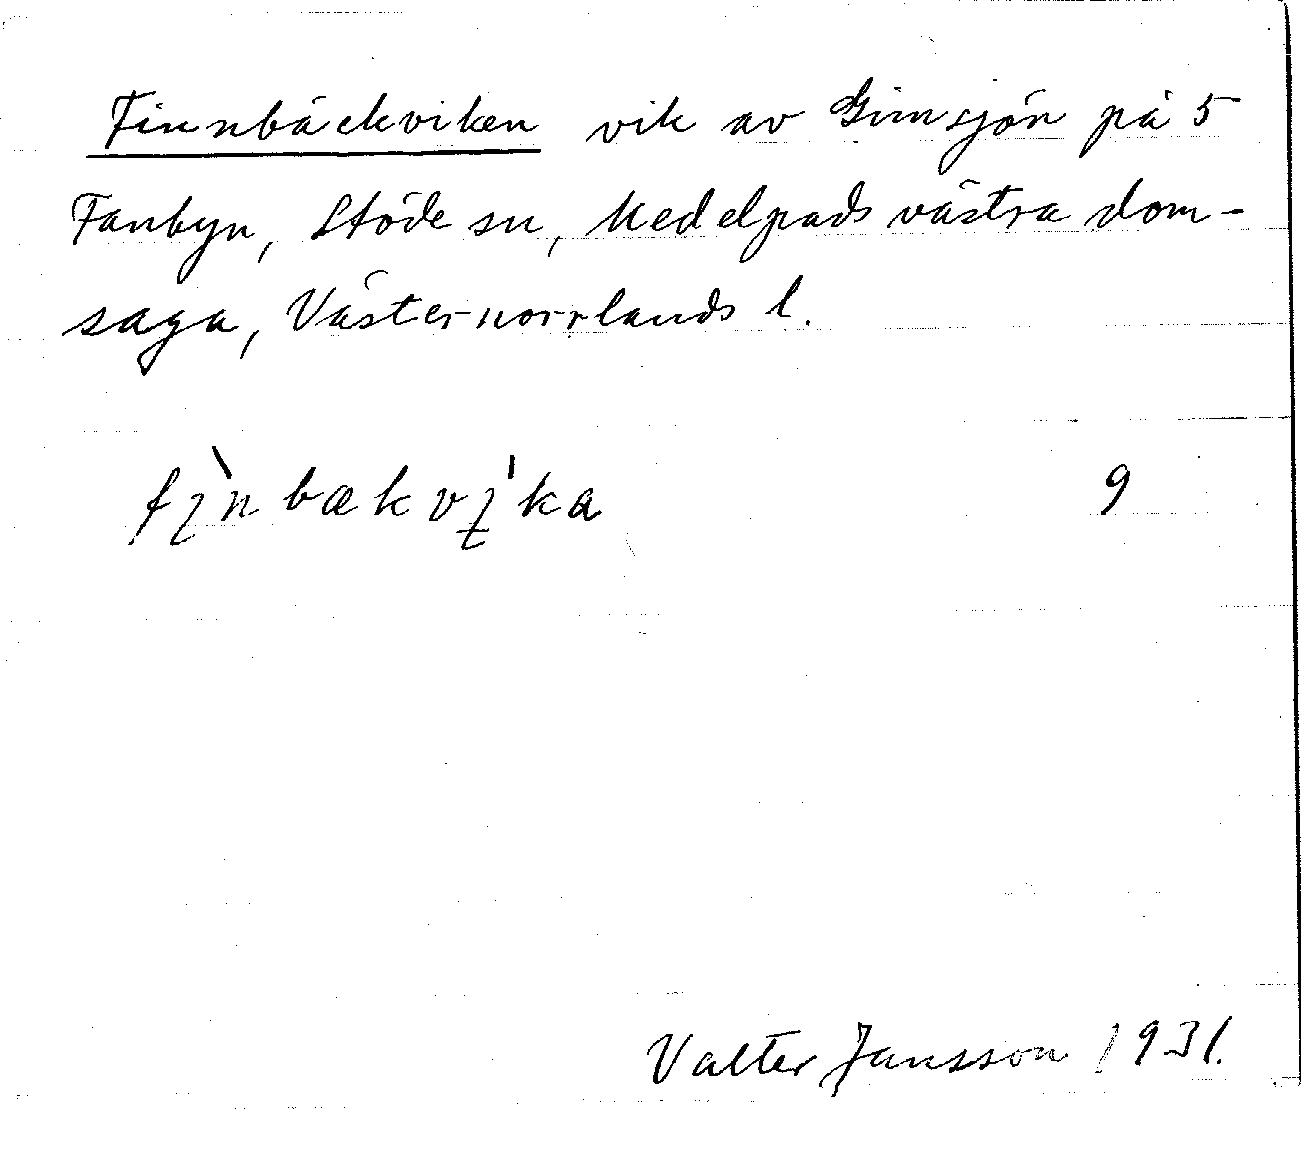 Finnbäckviken vik av Gimsjön på 5
Fanbyn, Stöde sn, Medelpads västra dom-
saga, Västernorrlands l.
fı̀nbækvı̍ka 9
Valter Jansson 1931.